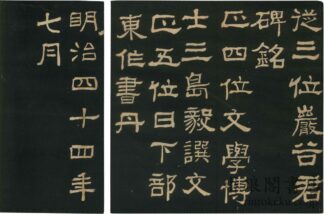 從三位巖谷君
碑銘
正四位文學博
士三島毅譔文
正五位日下部
東作書丹
明治四十四年
七月